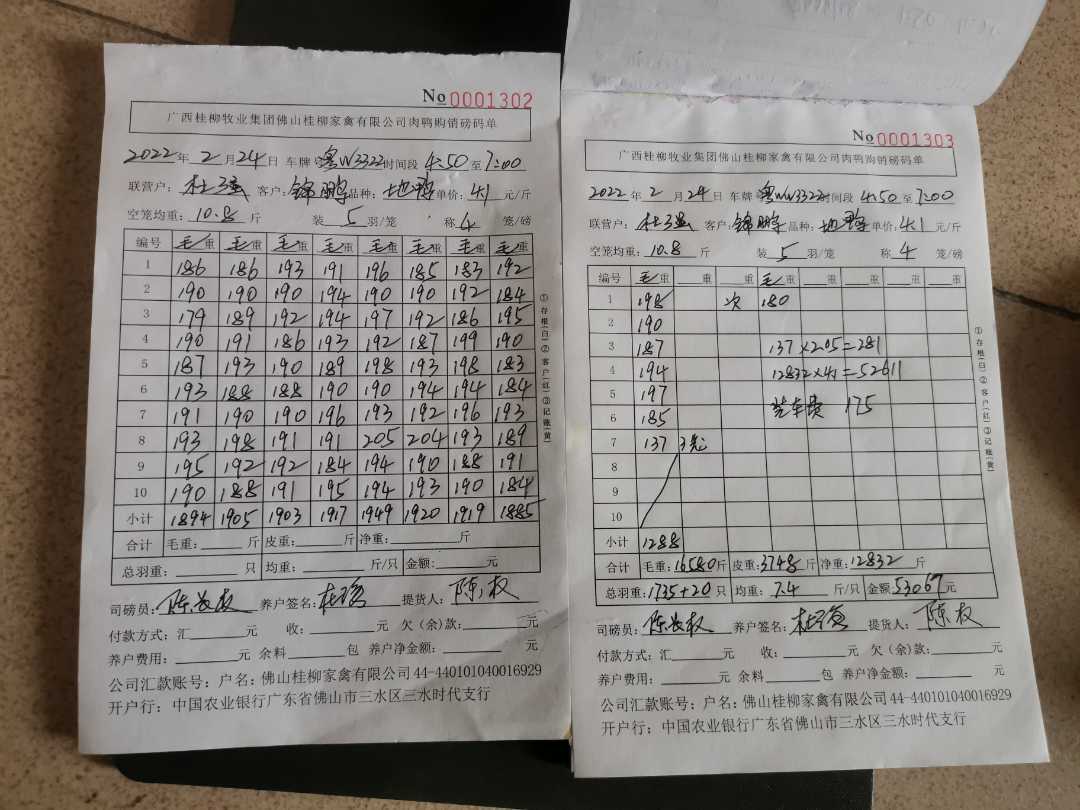 No 0001302
广西桂柳牧业集团佛山桂柳家禽有限公司肉鸭购销磅码单
2022年 2 月 24 日 车牌 粤W3322 时间段 4:50 至 7:00
联营户: 客户: 锦鹏 品种: 地鸭 单价: 4.1 元/斤
空笼均重: 10.8 斤 装 5 羽/笼 称 4 笼/磅
编号 毛重 毛重 毛重 毛重 毛重 毛重 毛重 毛重
1 186 186 193 191 196 185 183 192
2 190 190 190 194 190 190 192 184
3 179 189 192 194 197 192 186 195
4 190 191 186 193 192 187 199 190
5 187 193 190 189 198 193 198 183
6 193 188 188 190 190 194 194 184
7 191 190 190 196 193 192 196 193
8 193 198 191 191 205 204 193 189
9 195 192 192 184 194 190 188 191
10 190 188 191 195 194 193 190 184
小计 1894 1905 1903 1917 1949 1920 1919 1885
合计 毛重: 斤 皮重: 斤 净重: 斤
总羽重: 只 均重: 斤/只 金额: 元
①存根(白)②客户(红)③记账(黄)
司磅员: 养户签名: 提货人: 陈权
付款方式:汇 元 收: 元 欠(余)款: 元
养户费用: 元 余料 包 养户净金额: 元
公司汇款账号:户名:佛山桂柳家禽有限公司44-440101040016929
开户行:中国农业银行广东省佛山市三水区三水时代支行
No 0001303
广西桂柳牧业集团佛山桂柳家禽有限公司肉鸭购销磅码单
2022年 2 月 24 日 车牌 粤W3322 时间段 4:50 至 7:00
联营户: 客户: 锦鹏 品种: 地鸭 单价: 4.1 元/斤
空笼均重: 10.8 斤 装 5 羽/笼 称 4 笼/磅
编号 毛重 重 重 毛重 重 重 重 重
1 198 次 180
2 190
3 187 137×2.05=281
4 194 12832×4.1=52611
5 197
6 185 装车费 175
7 137 3笼
8
9
10
小计 1288
合计 毛重: 16580 斤 皮重: 3748 斤 净重: 12832 斤
总羽重: 1735+20 只 均重: 7.4 斤/只 金额: 53067 元
①存根(白)②客户(红)③记账(黄)
司磅员: 养户签名: 提货人: 陈权
付款方式:汇 元 收: 元 欠(余)款: 元
养户费用: 元 余料 包 养户净金额: 元
公司汇款账号:户名:佛山桂柳家禽有限公司44-440101040016929
开户行:中国农业银行广东省佛山市三水区三水时代支行